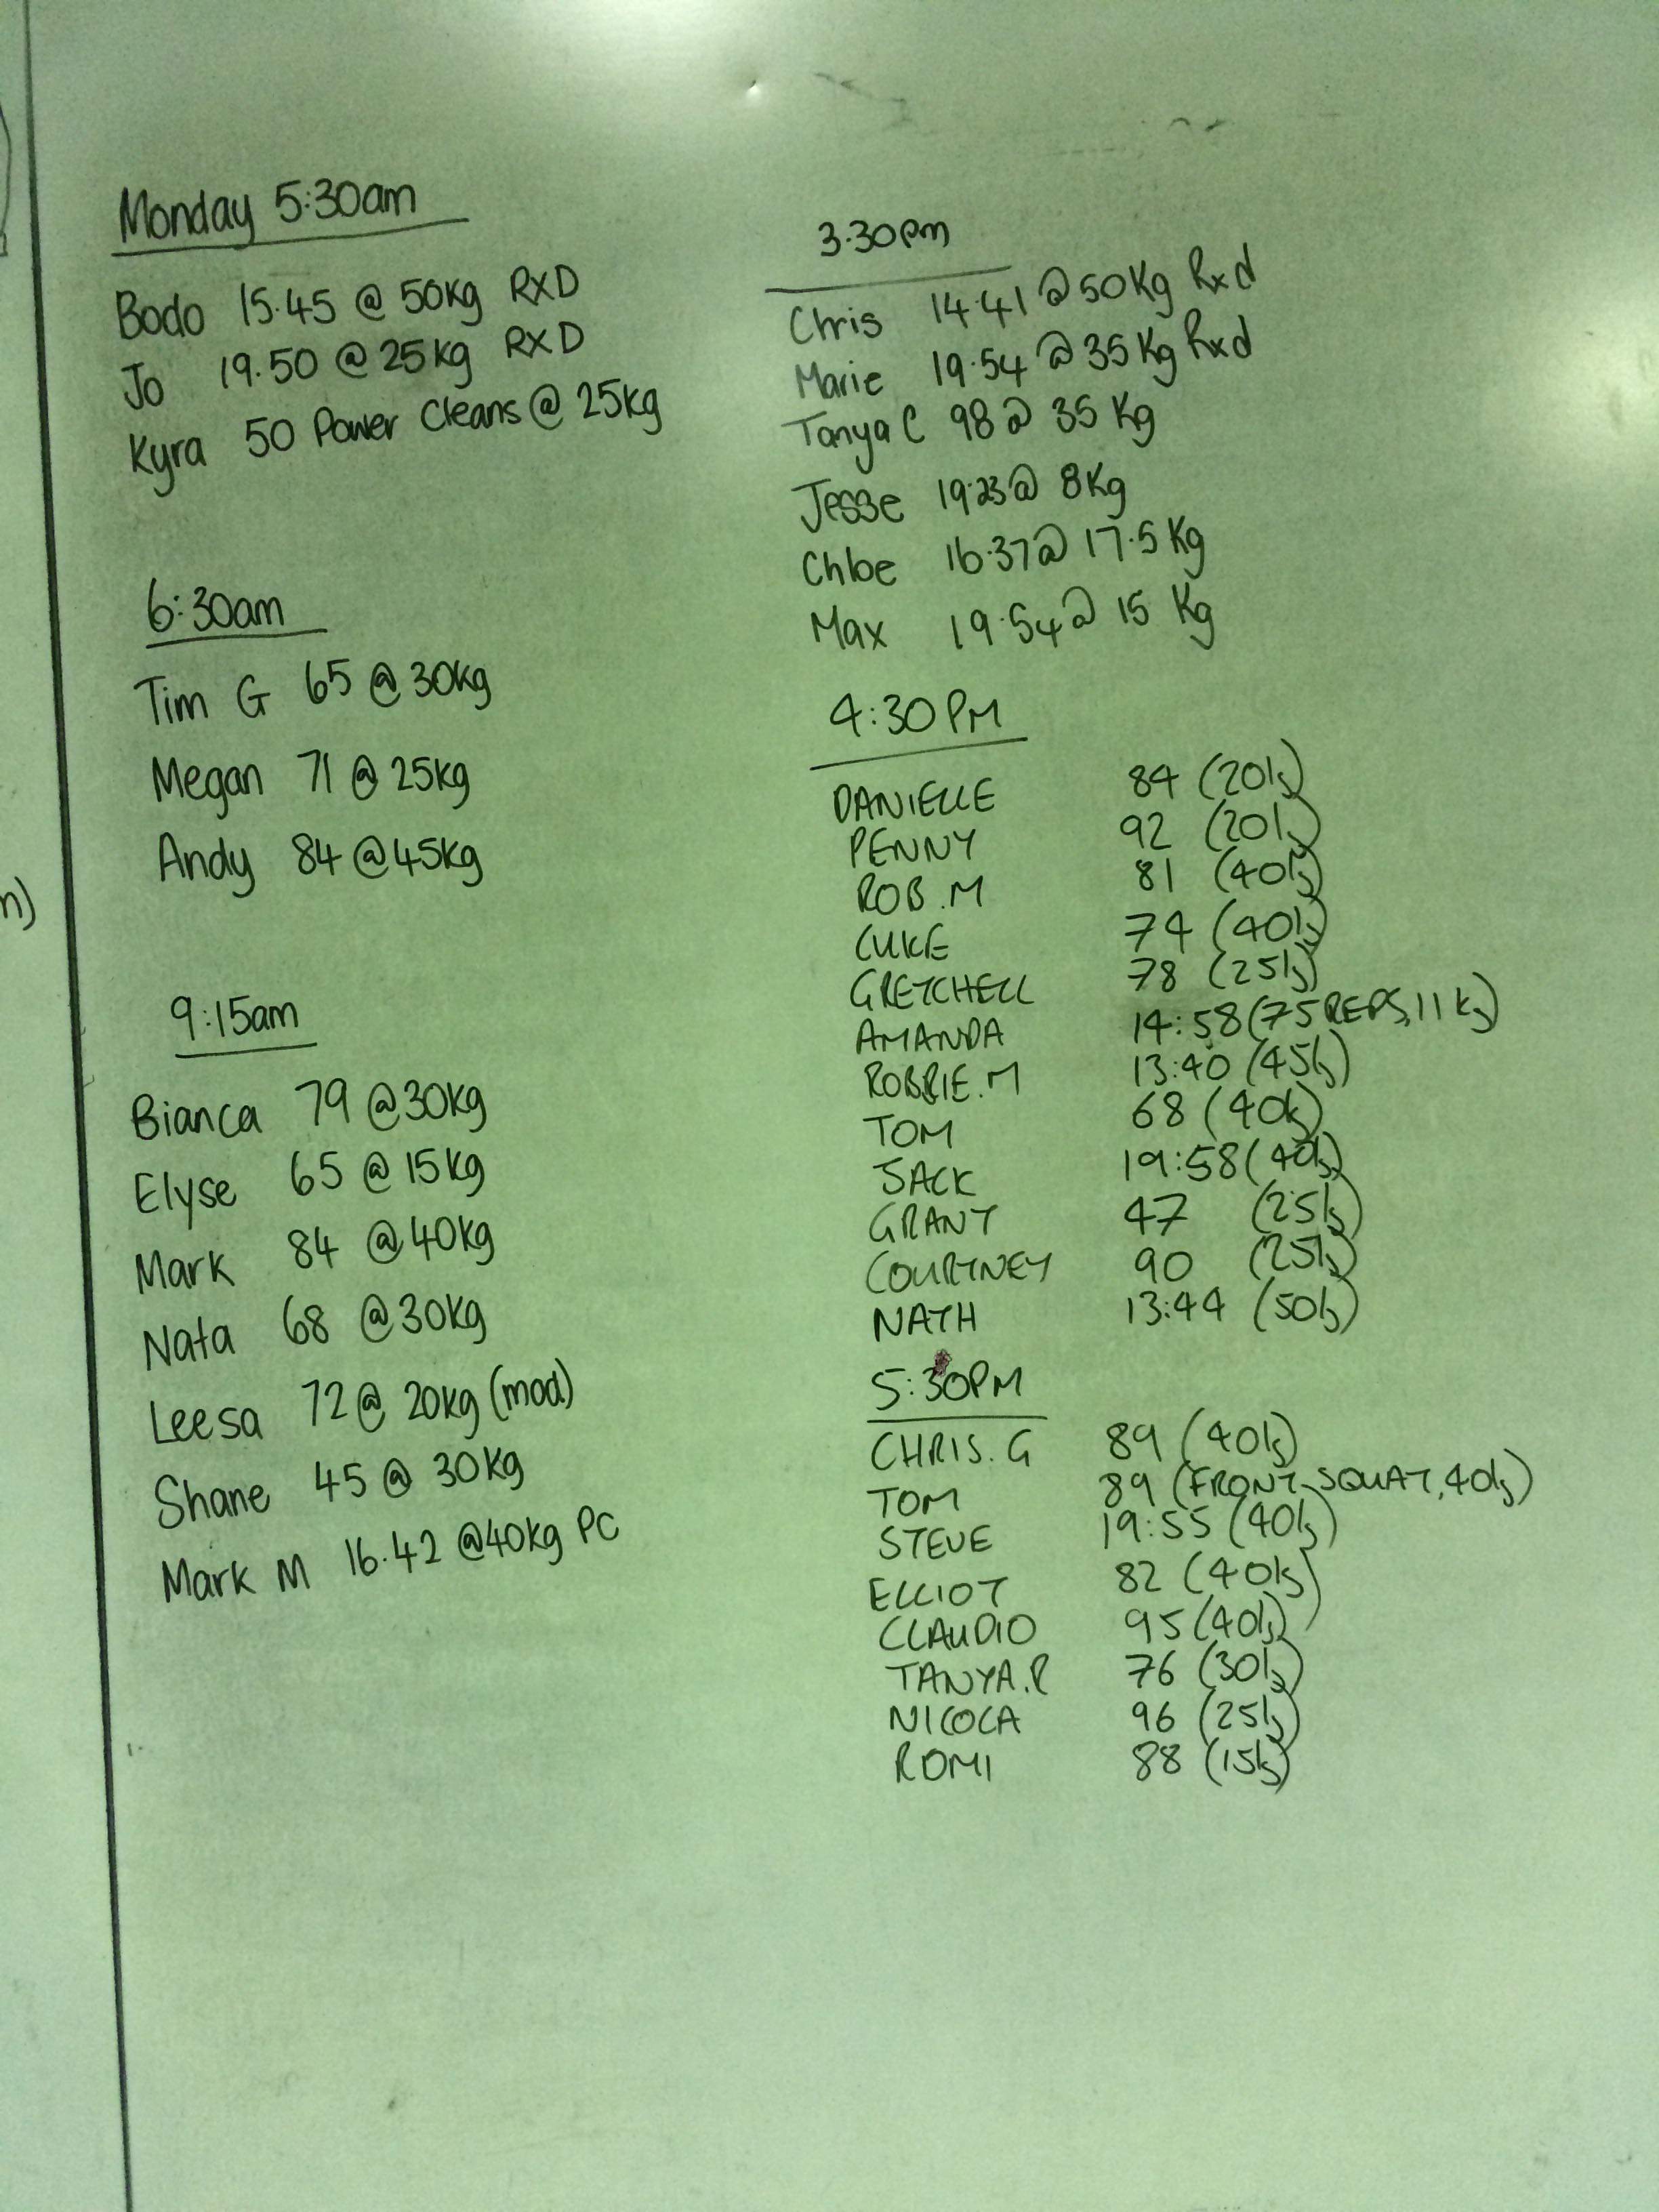 Monday 5:30am
Bodo 15.45 @ 50kg RXD
Jo 19.50 @ 25kg RXD
Kyra 50 Power Cleans @ 25kg
6:30am
Tim G 65 @ 30kg
Megan 71 @ 25kg
Andy 84 @ 45kg
n)
9:15am
Bianca 79 @ 30kg
Elyse 65 @ 15kg
Mark 84 @ 40kg
Nata 68 @ 30kg
Leesa 72 @ 20kg (mod)
Shane 45 @ 30kg
Mark M 16.42 @ 40kg PC
3.30pm
Chris 14.41 @ 50Kg Rxd
Marie 19.54 @ 35Kg Rxd
Tanya C 98 @ 35 Kg
Jesse 19.23 @ 8Kg
Chloe 16.37 @ 17.5 Kg
Max 19.54 @ 15 Kg
4:30PM
DANIELLE 84 (20kg)
PENNY 92 (20kg)
ROB.M 81 (40kg)
LUKE 74 (40kg)
GRETCHELL 78 (25kg)
AMANDA 14:58 (75 REPS, 11kg)
ROBBIE.M 13:40 (45kg)
TOM 68 (40kg)
JACK 19:58 (40kg)
GRANT 47 (25kg)
COURTNEY 90 (25kg)
NATH 13:44 (50kg)
5:30PM
CHRIS.G 89 (40kg)
TOM 89 (FRONT SQUAT, 40kg)
STEVE 19:55 (40kg)
ELLIOT 82 (40kg)
CLAUDIO 95 (40kg)
TANYA.R 76 (30kg)
NICOLA 96 (25kg)
ROMI 88 (15kg)